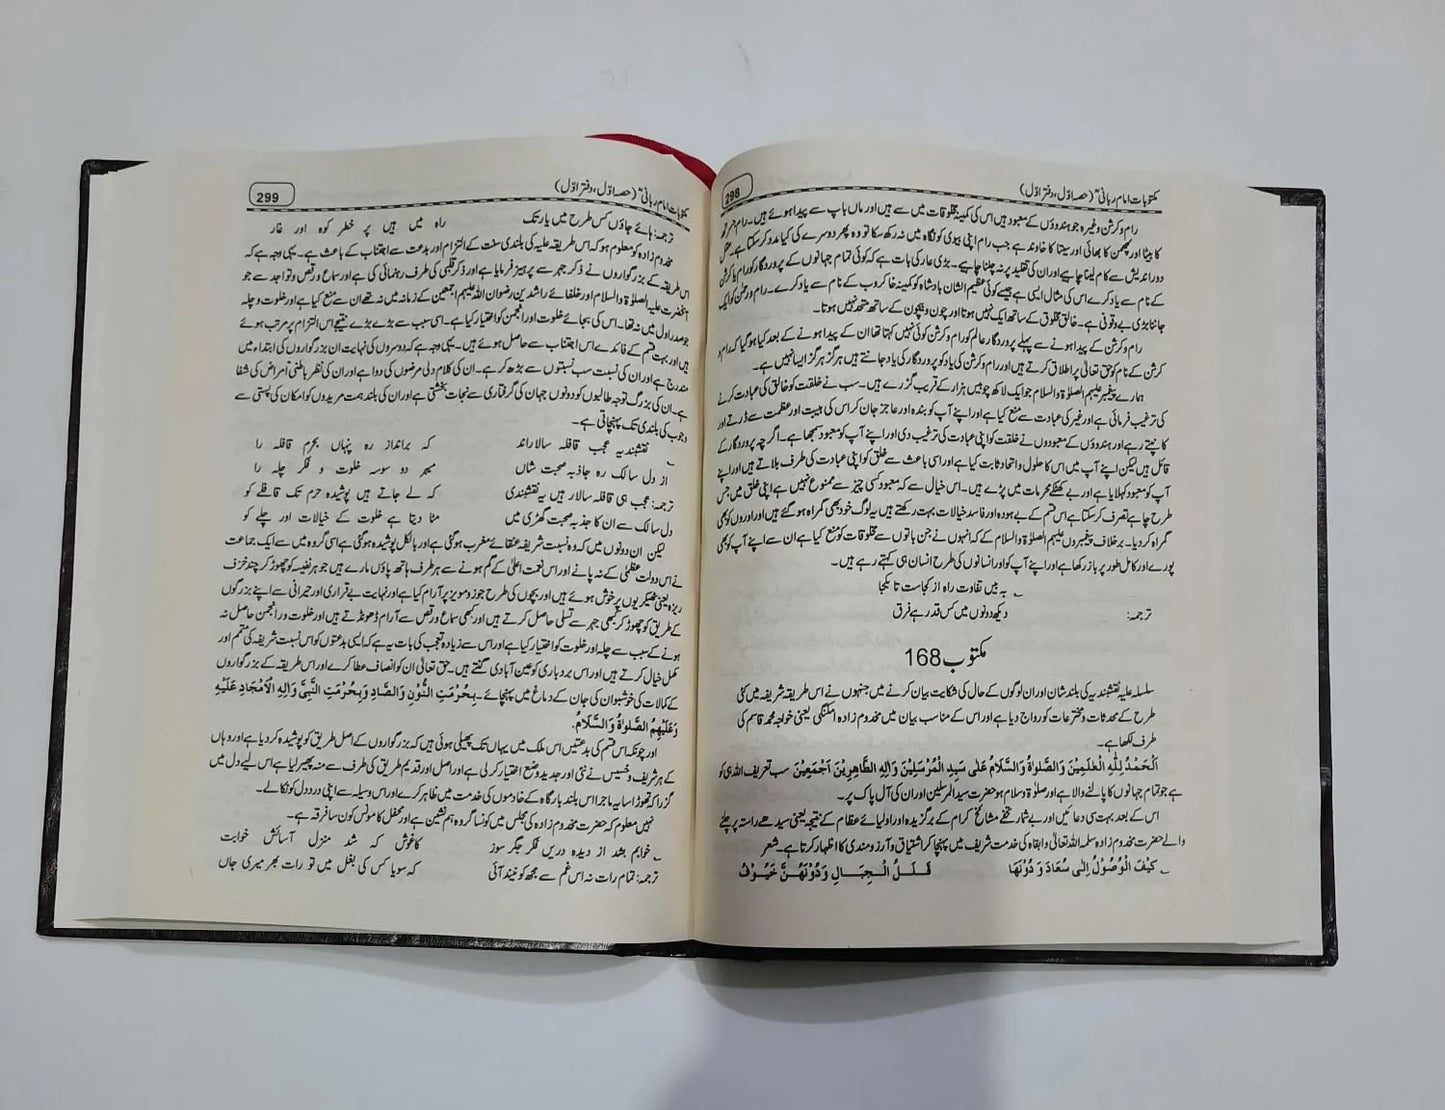 298
مکتوبات امام ربانیؒ (حصہ اوّل، دفتر اوّل)
رام و کرشن وغیرہ جو ہندوؤں کے معبود ہیں اس کی کمینہ مخلوقات میں سے ہیں اور ماں باپ سے پیدا ہوئے ہیں۔ رام جسرتھ
کا بیٹا اور لچھمن کا بھائی اور سیتا کا خاوند ہے جب رام اپنی بیوی کو نگاہ میں نہ رکھ سکا تو وہ پھر دوسرے کی کیا مدد کر سکتا ہے۔ عقل
دور اندیش سے کام لینا چاہیے اور ان کی تقلید پر نہ چلنا چاہیے۔ بڑی عار کی بات ہے کہ کوئی تمام جہانوں کے پروردگار کو رام یا کرشن
کے نام سے یاد کرے اس کی مثال ایسی ہے جیسے کوئی عظیم الشان بادشاہ کو کمینہ خاکروب کے نام سے یاد کرے۔ رام و رحمٰن کو ایک
جاننا بڑی بے وقوفی ہے۔ خالق مخلوق کے ساتھ ایک نہیں ہوتا اور چون و بیچون کے ساتھ متحد نہیں ہوتا۔
رام و کرشن کے پیدا ہونے سے پہلے پروردگار عالم کو رام و کرشن کوئی نہیں کہتا تھا ان کے پیدا ہونے کے بعد کیا ہو گیا کہ رام و
کرشن کے نام کو حق تعالیٰ پر اطلاق کرتے ہیں اور رام و کرشن کی یاد کو پروردگار کی یاد جانتے ہیں ہرگز ہرگز ایسا نہیں ہے۔
ہمارے پیغمبر علیہم الصلوٰۃ والسلام جو ایک لاکھ چوبیس ہزار کے قریب گزرے ہیں۔ سب نے خلقت کو خالق کی عبادت کرنے
کی ترغیب فرمائی ہے اور غیر کی عبادت سے منع کیا ہے اور اپنے آپ کو بندہ اور عاجز جان کر اس کی ہیبت اور عظمت سے ڈرتے اور
کانپتے رہے اور ہندوؤں کے معبودوں نے خلقت کو اپنی عبادت کی ترغیب دی اور اپنے آپ کو معبود سمجھا ہے۔ اگرچہ پروردگار کے
قائل ہیں لیکن اپنے آپ میں اس کا حلول و اتحاد ثابت کیا ہے اور اسی باعث سے خلق کو اپنی عبادت کی طرف بلاتے ہیں اور اپنے
آپ کو معبود کہلایا ہے اور بے کھٹکے محرمات میں پڑے ہیں۔ اس خیال سے کہ معبود کسی چیز سے ممنوع نہیں ہے اپنی خلق میں جس
طرح چاہے تصرف کر سکتا ہے اس قسم کے بے ہودہ اور فاسد خیالات بہت رکھتے ہیں یہ لوگ خود بھی گمراہ ہو گئے ہیں اور اوروں کو بھی
گمراہ کر دیا۔ برخلاف پیغمبروں علیہم الصلوٰۃ والسلام کے کہ انہوں نے جن باتوں سے مخلوقات کو منع کیا ہے ان سے اپنے آپ کو بھی
پورے اور کامل طور پر باز رکھا ہے اور اپنے آپ کو اور انسانوں کی طرح انسان ہی کہتے رہے ہیں۔
بہ بیں تفاوت راہ از کجاست تا بکجا
ترجمہ: دیکھ دونوں میں کس قدر ہے فرق
مکتوب 168
سلسلہ علیہ نقشبندیہ کی بلند شان اور ان لوگوں کے حال کی شکایت بیان کرنے میں جنہوں نے اس طریقہ شریفہ میں کئی
طرح کے محدثات و مخترعات کو رواج دیا ہے اور اس کے مناسب بیان میں مخدوم زادہ امکنگی یعنی خواجہ محمد قاسم کی
طرف لکھا ہے۔
اَلْحَمْدُ لِلّٰهِ الْعٰلَمِیْنَ وَالصَّلوٰةُ وَالسَّلَامُ عَلٰی سَیِّدِ الْمُرْسَلِیْنَ وَاٰلِهِ الطَّاهِرِیْنَ اَجْمَعِیْنَ سب تعریف اللہ ہی کو
ہے جو تمام جہانوں کا پالنے والا ہے اور صلوٰۃ و سلام ہو حضرت سید المرسلین اور ان کی آل پاک پر۔
اس کے بعد بہت سی دعائیں اور بے شمار تحفے مشائخ کرام کے برگزیدہ اور اولیائے عظام کے نتیجہ یعنی سیدھے راستہ پر چلنے
والے حضرت مخدوم زادہ سلمہ اللہ تعالیٰ وابقاہ کی خدمت شریف میں پہنچا کر اشتیاق و آرزومندی کا اظہار کرتا ہے۔ شعر
کَیْفَ الْوُصُوْلُ اِلٰی سُعَادَ وَدُوْنَهَا قُلَلُ الْجِبَالِ وَدُوْنَهُنَّ خُیُوْفُ
299
مکتوبات امام ربانیؒ (حصہ اوّل، دفتر اوّل)
ترجمہ: ہائے جاؤں کس طرح میں یار تک راہ میں ہیں پر خطر کوہ اور غار
مخدوم زادہ کو معلوم ہو کہ اس طریقہ علیہ کی بلندی سنت کے التزام اور بدعت سے اجتناب کے باعث ہے۔ یہی وجہ ہے کہ
اس طریقہ کے بزرگواروں نے ذکر جہر سے پرہیز فرمایا ہے اور ذکر قلبی کی طرف رہنمائی کی ہے اور سماع و رقص و تواجد سے جو
آنحضرت علیہ الصلوٰۃ والسلام اور خلفائے راشدین رضوان اللہ علیہم اجمعین کے زمانہ میں نہ تھے ان سے منع کیا ہے اور خلوت و چلہ
جو صدر اول میں نہ تھا۔ اس کی بجائے خلوت در انجمن کو اختیار کیا ہے۔ اسی سبب سے بڑے بڑے نتیجے اس التزام پر مرتب ہوئے
ہیں اور بہت قسم کے فائدے اس اجتناب سے حاصل ہوئے ہیں۔ یہی وجہ ہے کہ دوسروں کی نہایت ان بزرگواروں کی ابتداء میں
مندرج ہے اور ان کی نسبت سب نسبتوں سے بڑھ کر ہے۔ ان کی کلام دلی مرضوں کی دوا ہے اور ان کی نظر باطنی امراض کی شفا
ہے۔ ان کی بزرگ توجہ طالبوں کو دونوں جہان کی گرفتاری سے نجات بخشتی ہے اور ان کی بلند ہمت مریدوں کو امکان کی پستی سے
وجوب کی بلندی تک پہنچاتی ہے۔
نقشبندیہ عجب قافلہ سالاراند کہ برانداز رہ پنہاں بحرم قافلہ را
از دل سالک رہ جاذبہ صحبت شاں میبرد وسوسہ خلوت و فکر چلہ را
ترجمہ: عجب ہی قافلہ سالار ہیں یہ نقشبندی کہ لے جاتے ہیں پوشیدہ حرم تک قافلے کو
دل سالک سے ان کا جذبہ صحبت گھڑی میں مٹا دیتا ہے خلوت کے خیالات اور چلے کو
لیکن ان دونوں میں کہ وہ نسبت شریفہ عنقائے مغرب ہو گئی ہے اور بالکل پوشیدہ ہو گئی ہے اسی گروہ میں سے ایک جماعت
نے اس دولت عظمٰی کے نہ پانے اور اس نعمت اعلیٰ کے گم ہونے سے ہر طرف ہاتھ پاؤں مارے ہیں جو ہر نفیسہ کو چھوڑ کر چند خزف
ریزہ یعنی ٹھیکریوں پر خوش ہوئے ہیں اور بچوں کی طرح جوز و مویز پر آرام کیا ہے اور نہایت بے قراری اور حیرانی سے اپنے بزرگوں
کے طریق کو چھوڑ کر کبھی جہر سے تسلی حاصل کرتے ہیں اور کبھی سماع و رقص سے آرام ڈھونڈتے ہیں اور خلوت در انجمن حاصل نہ
ہونے کے سبب سے چلہ اور خلوت کو اختیار کیا ہے اور اس سے زیادہ تعجب کی بات یہ ہے کہ ایسی بدعتوں کو اس نسبت شریفہ کی متمم اور
مکمل خیال کرتے ہیں اور اس بربادی کو عین آبادی گنتے ہیں۔ حق تعالیٰ ان کو انصاف عطا کرے اور اس طریقہ کے بزرگواروں
کے کمالات کی خوشبو ان کی جان کے دماغ میں پہنچائے۔ بِحُرْمَتِ النُّوْنِ وَالصَّادِ وَبِحُرْمَتِ النَّبِیِّ وَاٰلِهِ الْاَمْجَادِ عَلَیْهِ
وَعَلَیْهِمُ الصَّلوٰةُ وَالسَّلَامُ.
اور چونکہ اس قسم کی بدعتیں اس ملک میں یہاں تک پھیلی ہوئی ہیں کہ بزرگواروں کے اصل طریق کو پوشیدہ کر دیا ہے اور وہاں
کے ہر شریف و خسیس نے نئی اور جدید وضع اختیار کر لی ہے اور اصل اور قدیم طریق کی طرف سے منہ پھیر لیا ہے اس لیے دل میں
گزرا کہ تھوڑا سا یہ ماجرا اس بلند بارگاہ کے خادموں کی خدمت میں ظاہر کرے اور اس وسیلہ سے اپنی درد دل کو نکالے۔
نہیں معلوم کہ حضرت مخدوم زادہ کی مجلس میں کونسا گروہ ہم نشین ہے اور محفل کا مونس کون سا فرقہ ہے۔
خوابم بشد از دیدہ دریں فکر جگر سوز کاغوش کہ شد منزل آسائش خوابت
ترجمہ: تمام رات نہ اس غم سے مجھ کو نیند آئی کہ سویا کس کی بغل میں تو رات بھر میری جاں